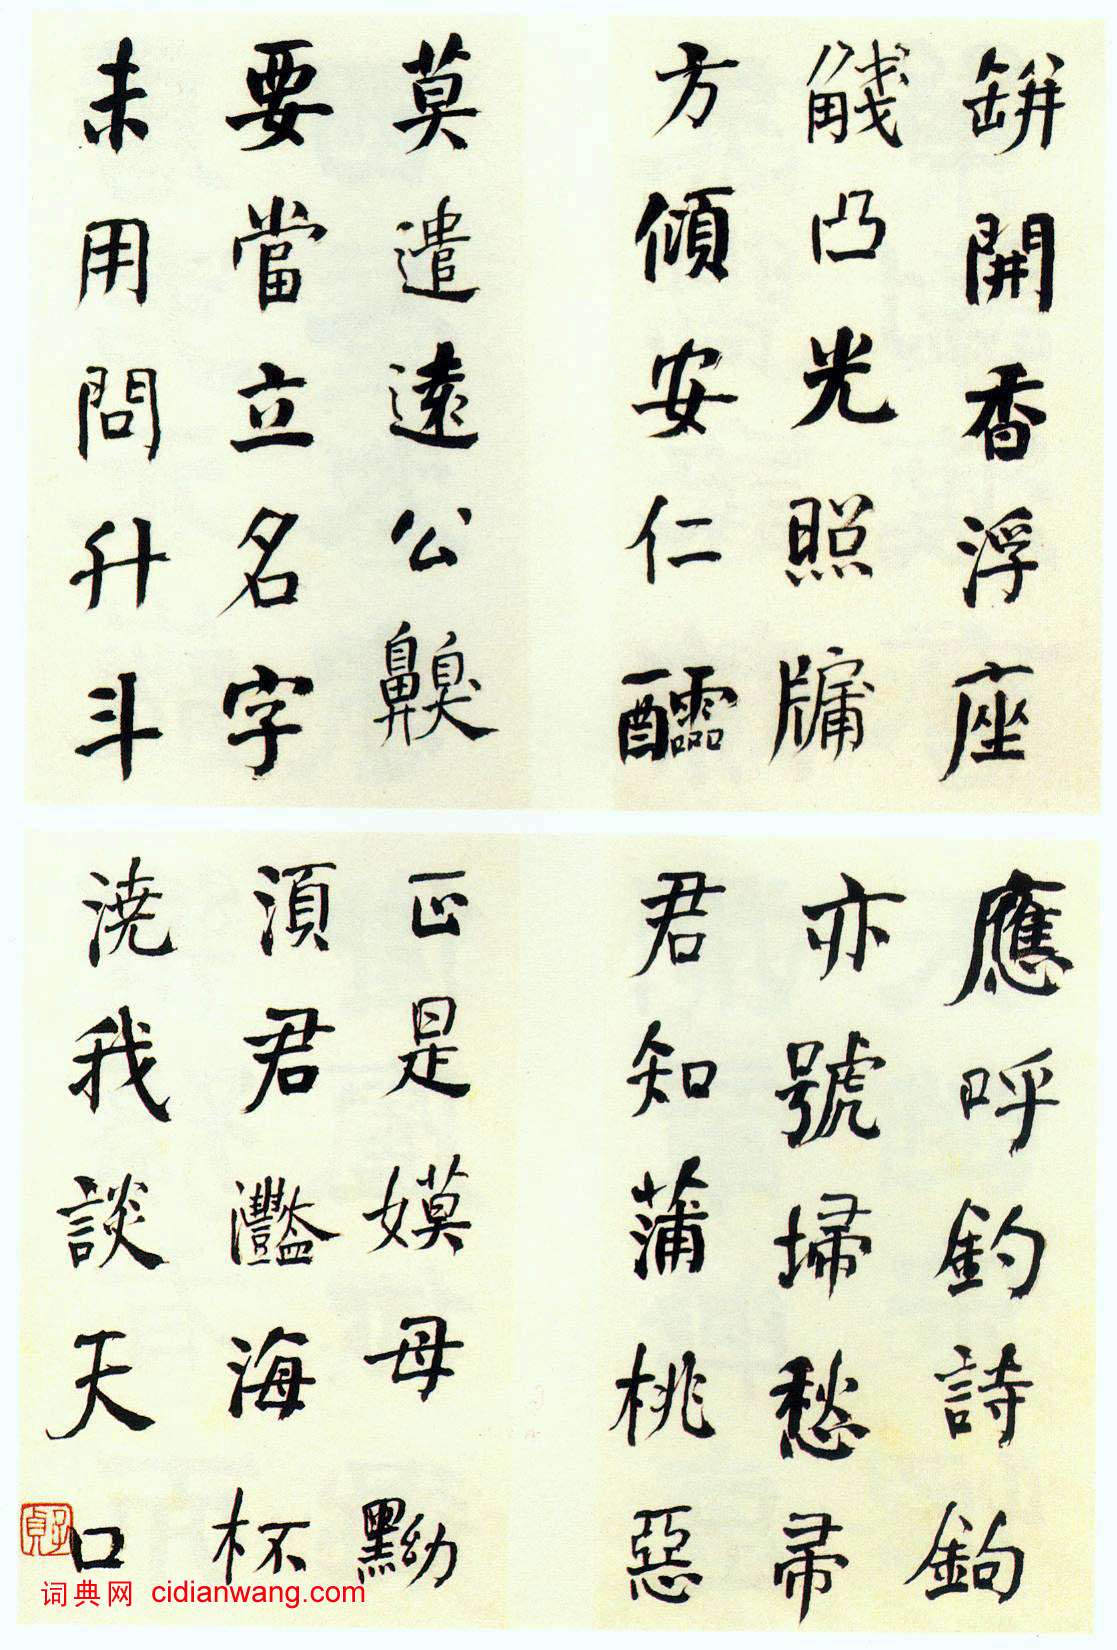 缾開香浮座
觴凸光照牗
方傾安仁醽
莫遣遠公齅
要當立名字
未用問升斗
應呼釣詩鉤
亦號掃愁帚
君知蒲桃惡
正是嫫母黝
須君灩海杯
澆我談天口
词典网 cidianwang.com